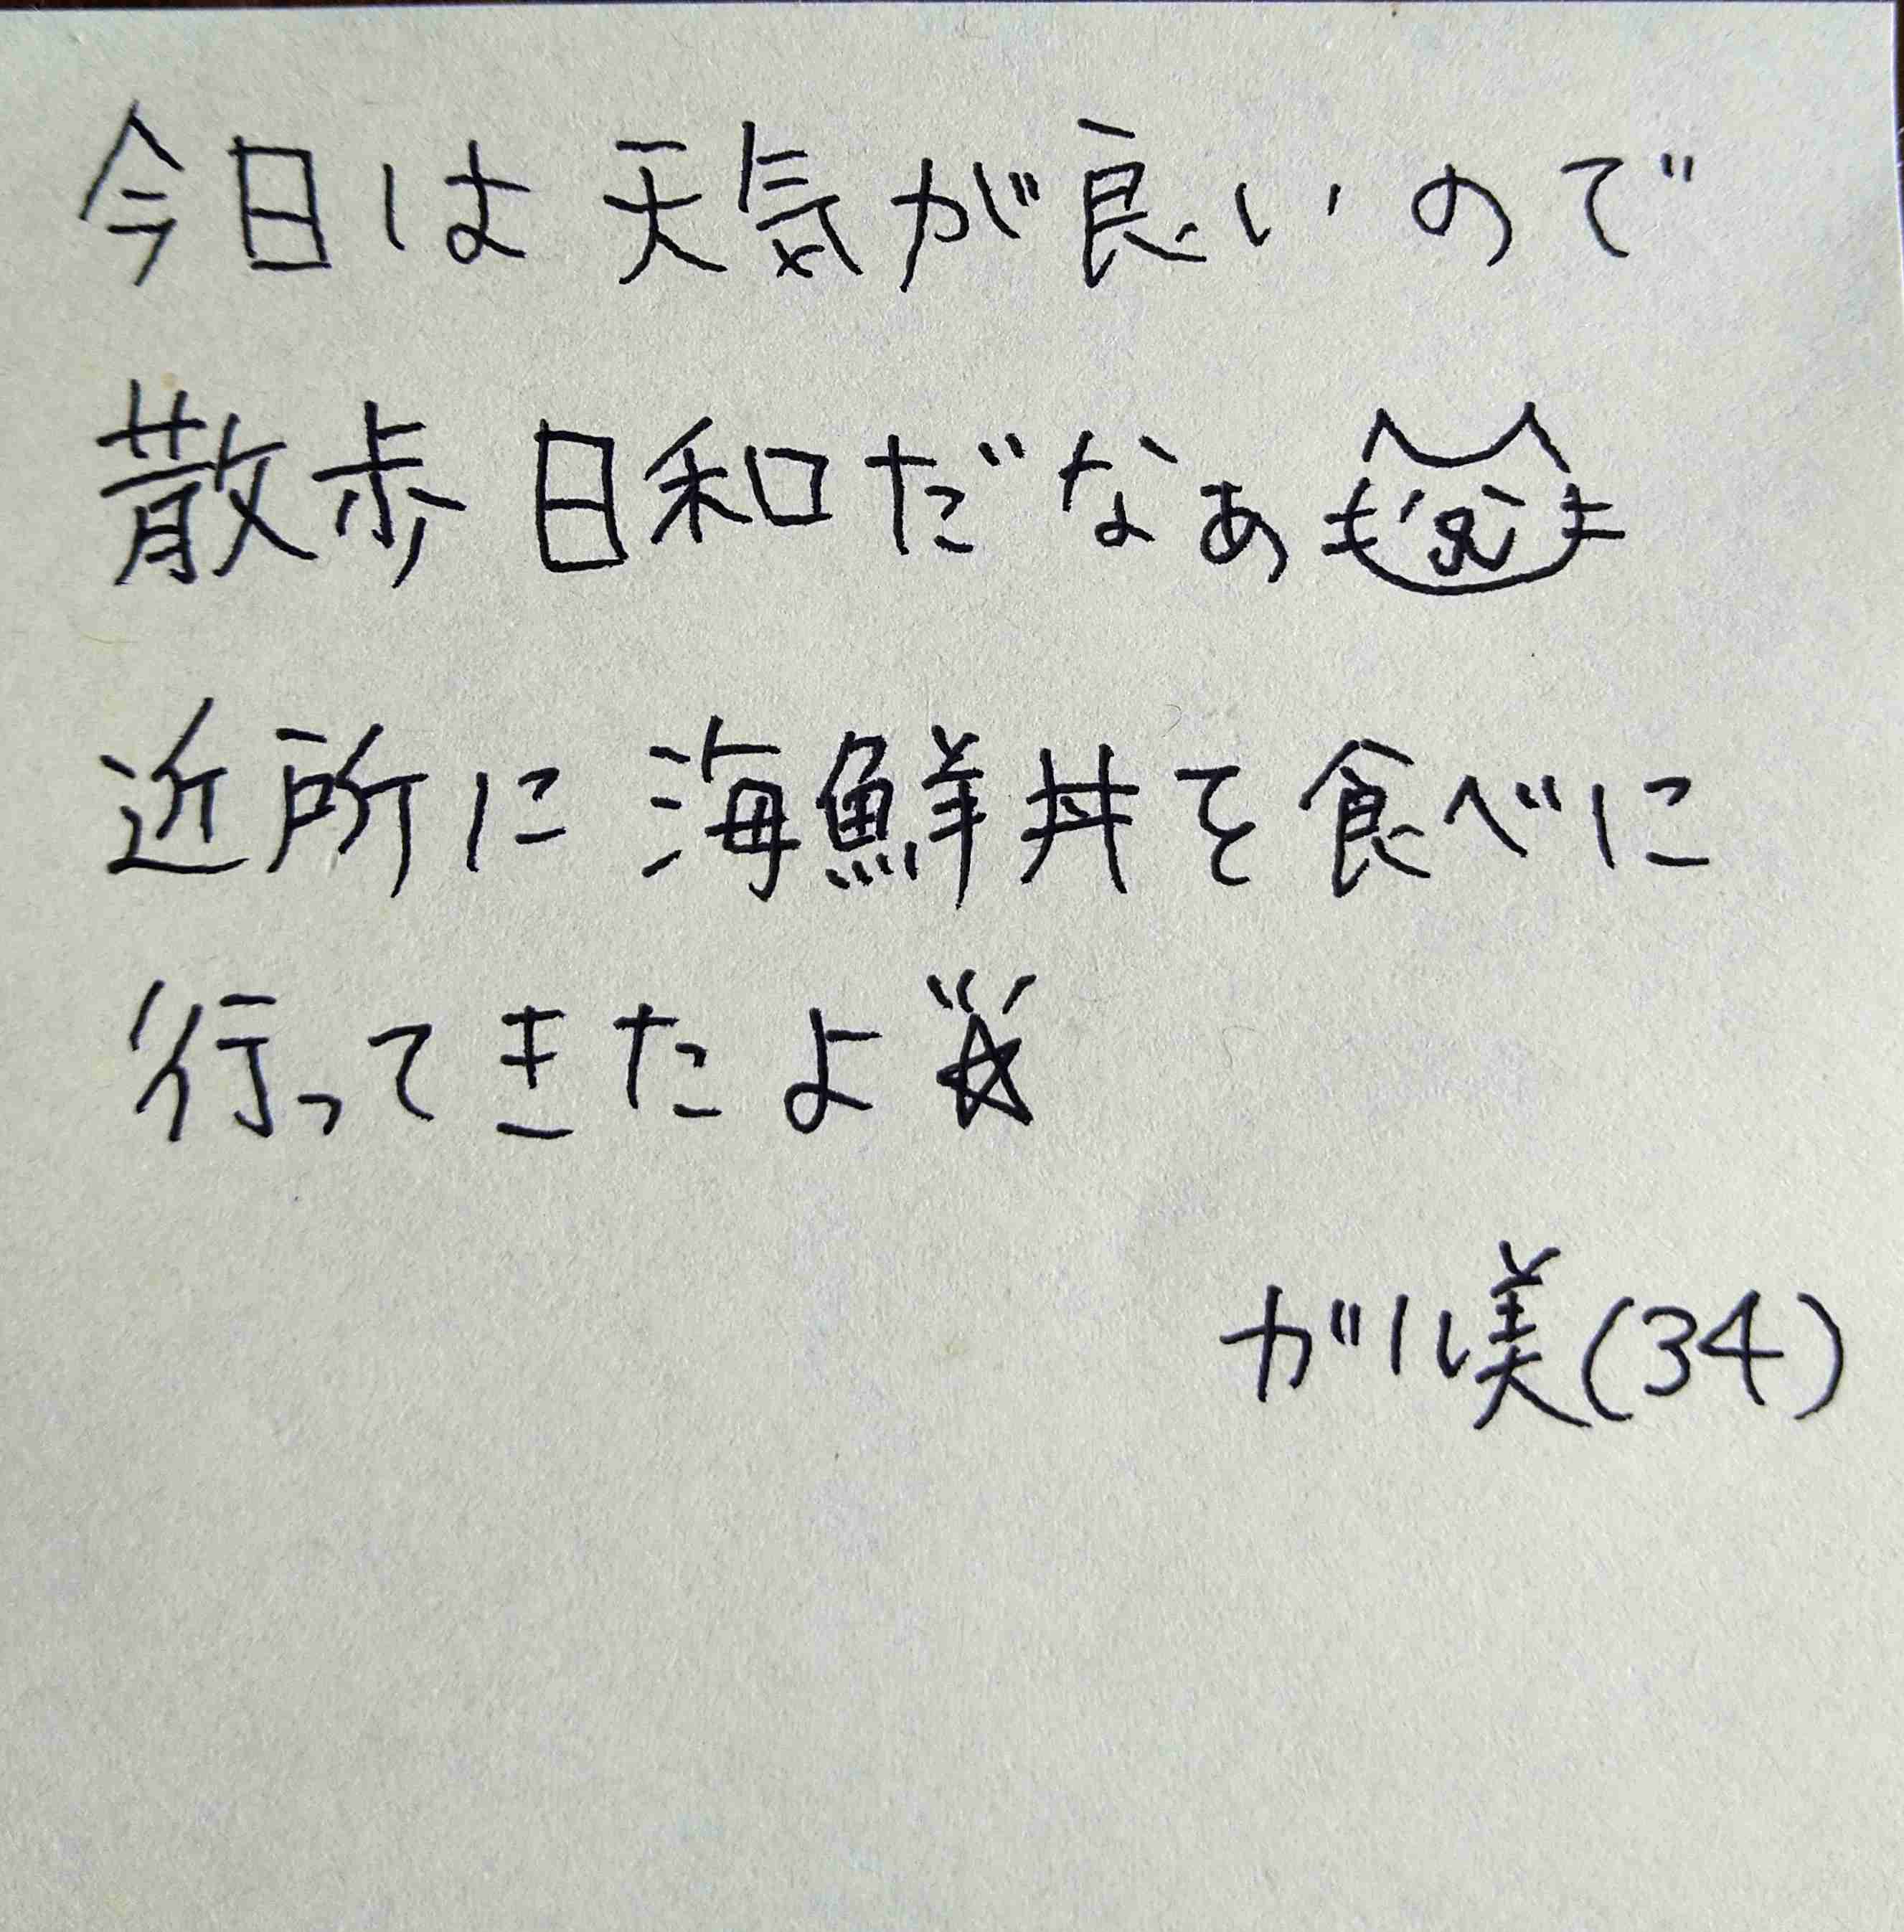 今日は天気が良いので
散歩日和だなぁ
近所に海鮮丼を食べに
行ってきたよ☆
ガル美(34)